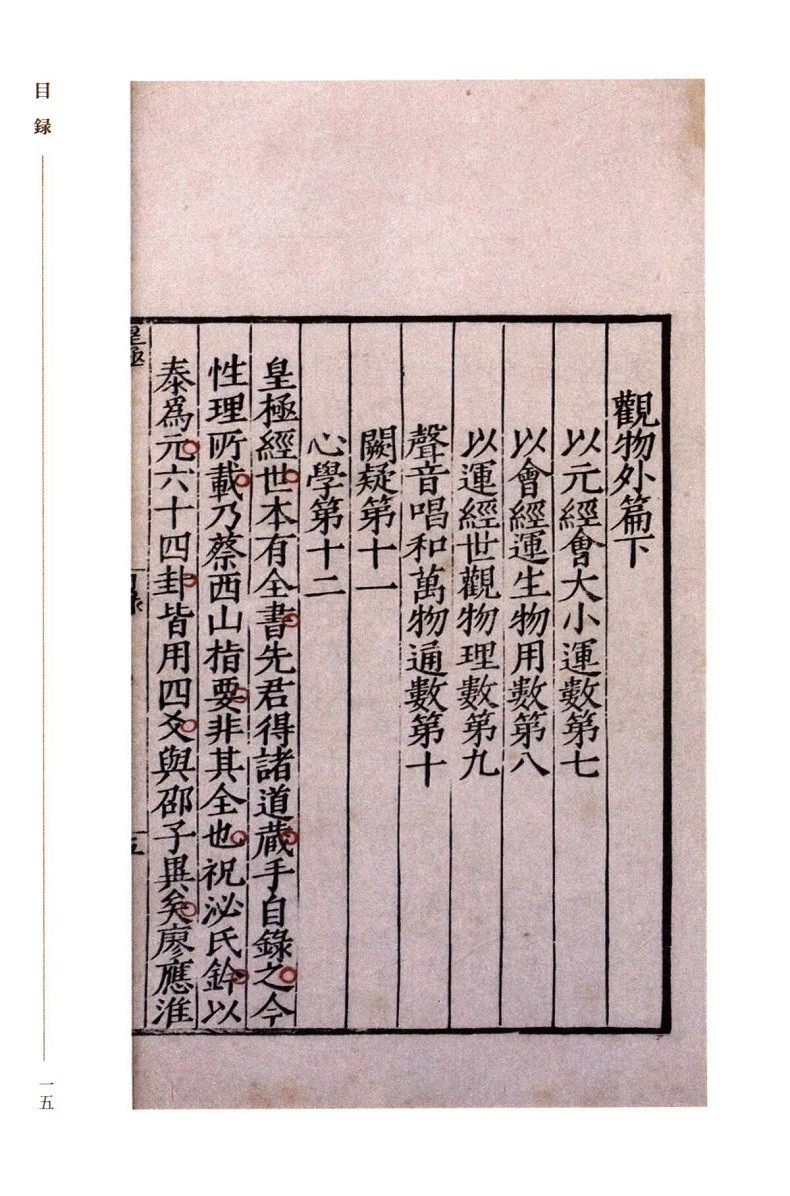 觀物外篇下
以元經會大小運數第七
以會經運生物用數第八
以運經世觀物理數第九
聲音唱和萬物通數第十
闕疑第十一
心學第十二
皇極經世本有全書先君得諸道藏手自錄之今
性理所載乃蔡西山指要非其全也祝泌氏鈐以
泰爲元六十四卦皆用四爻與邵子異矣廖應淮
皇極
目錄
目録
一五